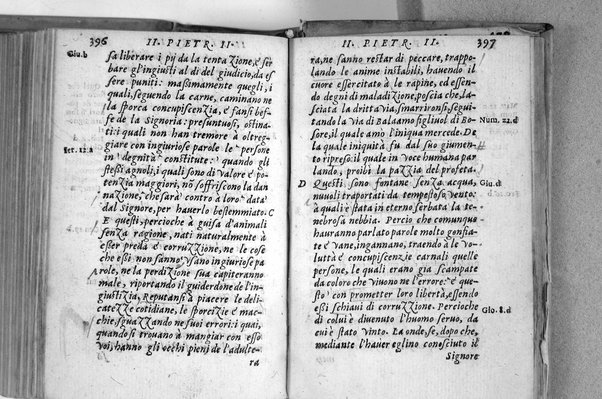 396 II. PIETR. II.
Giu.b
sa liberare i pij da la tentazione, e ser
bare gl'ingiusti al dì del giudicio, da es
sere puniti: maßimamente quegli, i
quali, seguendo la carne, caminano ne
la sporca concupiscenzia, e fansi bef-
fe de la Signoria: presuntuosi, ostina
ti: i quali non tremare ò oltreg-
giare con ingiuriose parole le persone
in degnità constitute: quando gli
steßi agnoli, i quali sono di valore e po
tenzia maggiori, nò soffriscono la dan
nazione, che sarà contro à loro data
dal Signore, per hauerlo bestemmiato. C
E questi, percioche à guisa d'animali
senza ragione, nati naturalmente à
esser preda e corruzzione, ne le cose
che eßi non sanno, usano ingiuriose pa
role, ne la perdizione sua capiteranno
male, riportando il guiderdone de l'in-
giustizia, Reputansi à piacere le deli-
catezze cotidiane, le sporcizie e mac-
chie, sguazzando ne suoi errori: i quai,
quando si trouano à mangiar con esso
voi, hanno gli occhi pieni de l'adulte-
ra
II. PIETR. II. 397
ra, ne sanno restar di peccare, trappo-
lando le anime instabili, hauendo il
cuore essercitato à le rapine, ed essen-
do degni di maladizione, poscia che, la-
sciata la dritta via, smarrironsi, seguì-
tando la via di Balaamo figliuol di Bo-
Num. 22.d
sore, il quale amò l'iniqua mercede. De
la quale iniquità fu dal suo giumen-
to ripreso: il quale in voce humana par
lando, proibì la pazzia del profeta.
D Questi sono fontane senza acqua,
Giu.d
nuuoli traportati da tempestoso vento:
à quali è stata in eterno serbata la te-
nebrosa nebbia. Percio che comunque
hauranno parlato parole molto gonfia-
te e vane, ingannano, traendo à le vo-
luttà e concupiscenzie carnali quelle
persone, le quali erano già scampate
da coloro che viuono ne l'errore: e que-
sto con prometter loro libertà, essendo
eßi schiaui di corruzzione. Percioche
Gio. 8.d
di colui è diuenuto l'huomo seruo, da
cui è stato vinto. La onde, se, dopo che,
mediante l'hauer eglino conosciuto il
Signore